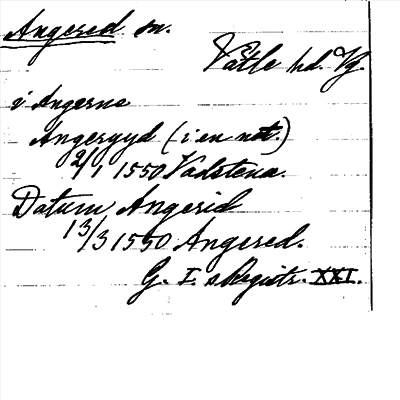 Angered sn.
Vätle hd. Vg.
i Angerne
Angergyd (i en not.)
2/1 1550 Vadstena.
Datum Angerid
13/3 1550 Angered.
G. I. s Registr. XXI.